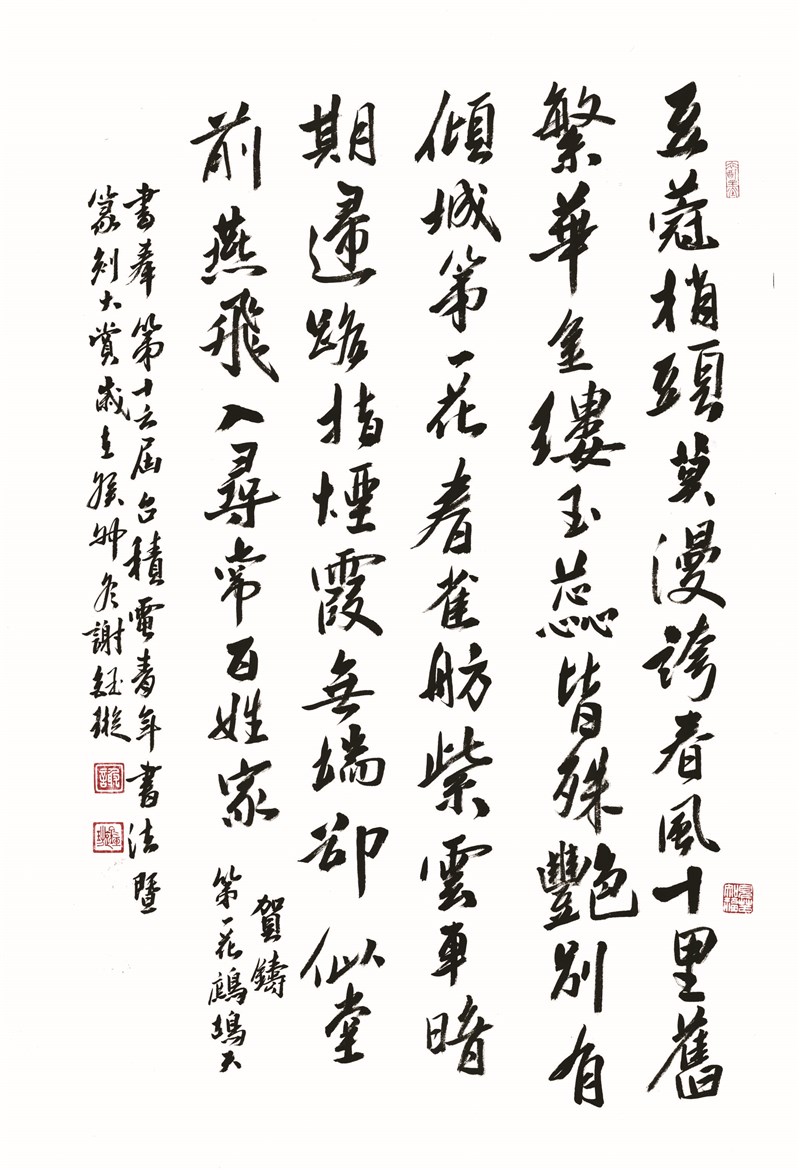 豆蔻梢頭莫漫誇春風十里舊
繁華金縷玉蕊皆殊艷別有
傾城第一花青雀舫紫雲車暗
期歸路指煙霞無端卻似堂
前燕飛入尋常百姓家
賀鑄
第一花鷓鴣天
書奉第十六屆台積電青年書法暨
篆刻大賞歲在癸卯冬謝鈺